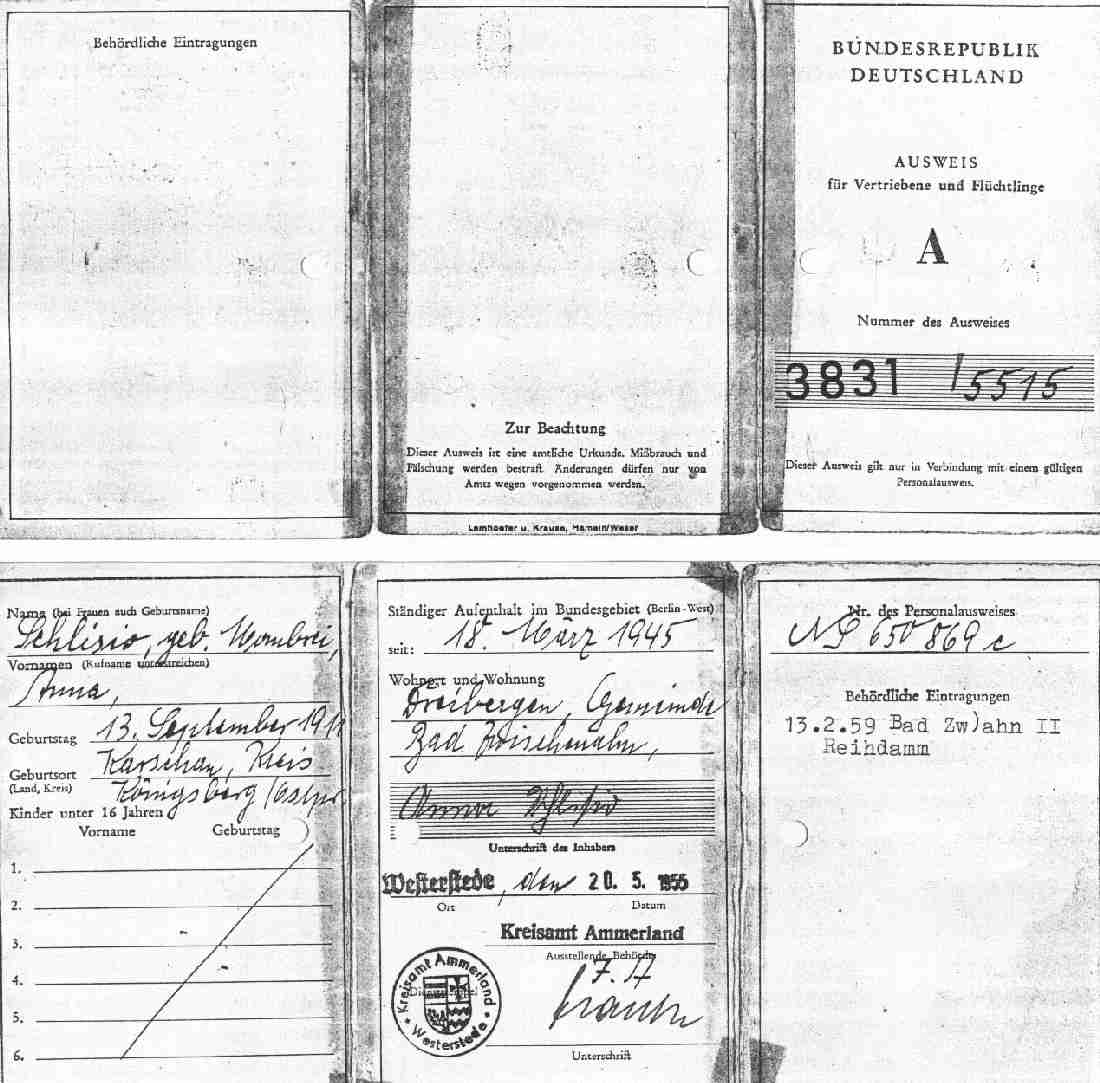 Behördliche Eintragungen
Zur Beachtung
Dieser Ausweis ist eine amtliche Urkunde. Mißbrauch und
Fälschung werden bestraft. Änderungen dürfen nur von
Amts wegen vorgenommen werden.
Lemhoefer u. Krause, Hameln/Weser
BUNDESREPUBLIK
DEUTSCHLAND
AUSWEIS
für Vertriebene und Flüchtlinge
A
Nummer des Ausweises
3831 / 5515
Dieser Ausweis gilt nur in Verbindung mit einem gültigen
Personalausweis.
Name (bei Frauen auch Geburtsname)
Schlisio, geb.
Vornamen (Rufname unterstreichen)
Anna,
Geburtstag 13. September
Geburtsort Karschau, Kreis
(Land, Kreis) Königsberg /Ostpr
Kinder unter 16 Jahren
Vorname Geburtstag
1.
2.
3.
4.
5.
6.
Ständiger Aufenthalt im Bundesgebiet (Berlin-West)
seit: 18. März 1945
Wohnort und Wohnung
Dreibergen, Gemeinde
Bad Zwischenahn,
Anna Schlisio
Unterschrift des Inhabers
Westerstede, den 20. 5. 1955
Ort Datum
Kreisamt Ammerland
Ausstellende Behörde
Kreisamt Ammerland
Westerstede
Unterschrift
Nr. des Personalausweises
650 869 c
Behördliche Eintragungen
13.2.59 Bad Zw)ahn II
Reihdamm